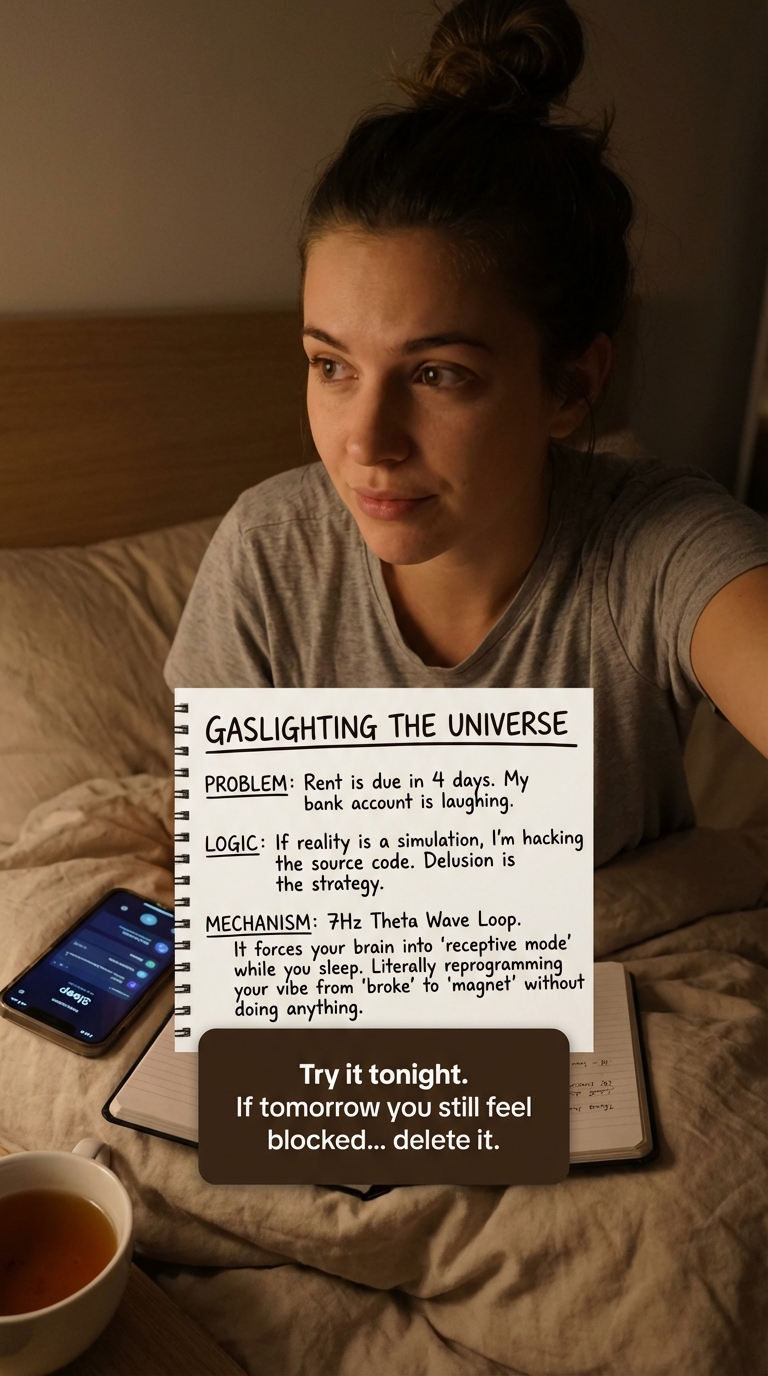 GASLIGHTING THE UNIVERSE
PROBLEM: Rent is due in 4 days. My
bank account is laughing.
LOGIC: If reality is a simulation, I'm hacking
the source code. Delusion is
the strategy.
MECHANISM: 7Hz Theta Wave Loop.
It forces your brain into 'receptive mode'
while you sleep. Literally reprogramming
your vibe from 'broke' to 'magnet' without
doing anything.
Try it tonight.
If tomorrow you still feel
blocked... delete it.
sleep